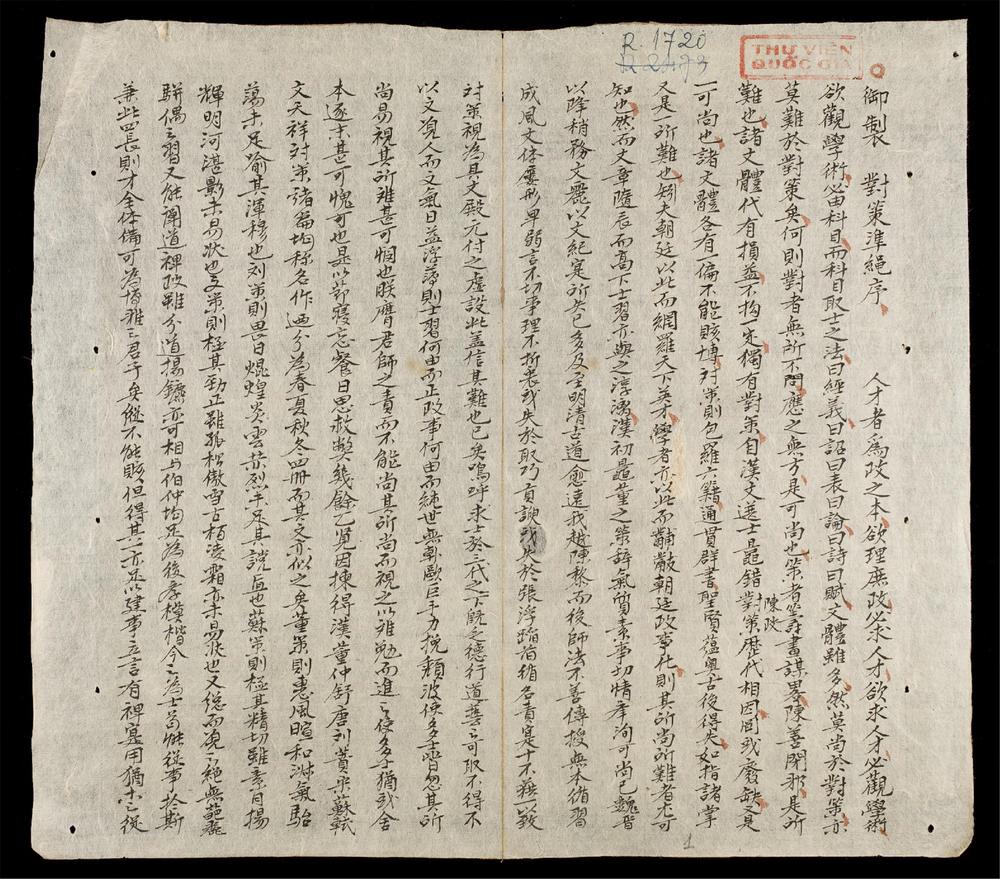 R. 1720
R 2473
THƯ VIỆN
QUỐC GIA
御製　對策準繩序　人才者為政之本欲理庶政必求人才欲求人才必觀學術
欲觀學術必由科目而科目取士之法曰經義曰詔曰表曰論曰詩曰賦文體雖多然莫尚於對策亦
莫難於對策矣何則對者無所不問應之無方是可尚也策者籌畫謀畧陳善閉邪是所
難也諸文體代有損益不拘一定獨有對策自漢文選士鼂錯對策歷代相因罔或廢缺又是
陳政
一可尚也諸文體各有一偏不能賅博對策則包羅六籍通貫群書聖賢蘊奧古後得失如指諸掌
又是一所難也矧夫朝廷以此而網羅天下英才學者亦以此而黼黻朝廷政事化則其所尚所難者尤可
知也然而文章隨辰而高下士習亦與之淳漓漢初鼂董之策辞氣質素事切情孚洵可尚已魏晋
以降稍務文麗以文紀寔所失已多及至明清古道愈遠我越陳黎而後師法不善傳授無本偹習
成風文体屡形卑弱言不切事理不折衷或失於取巧貢諛或失於張浮蹈旧循名責寔十不無以致
対策視為具文殿元付之虚設此盖信其難也已矣嗚呼求士於三代之下既乏德行道藝之可取不得不
以文观人而文氣日益浮薄則士習何由而正政事何由而純世無韓歐巨手力挽頹波使多士皆忽其所
尚易視其所难甚可悯也朕膺君師之責而不能尚其所尚而視之以难勉而進之使多士猶或舍
本逐末甚可愧可也是以節寝忘餐日思救獘幾餘乙覽因揀得漢董仲舒唐刘蕡宋蘇軾
文天祥対策诸篇均称名作廼分為春夏秋冬四冊而其文亦似之矣董策則惠風暄和淋氣駘
蕩未足喻其渾穆也刘策則畏日焜煌炎雲赫烈未足其説直也蘇策則極其精切雖素月揚
輝明河湛影未易狀也文策則極其劲正雖孤松傲雪古栢凌霜亦未易况也又総而观之絶無葩靡
駢偶之習又能闡道裨政雖分道揚鑣亦可相与伯仲均足為後孝模楷今之為士苟能從事於斯
兼此四長則才全体備可為博雅之君子矣縱不能賅但得其一亦足以建事立言有裨寔用猶十之從
1